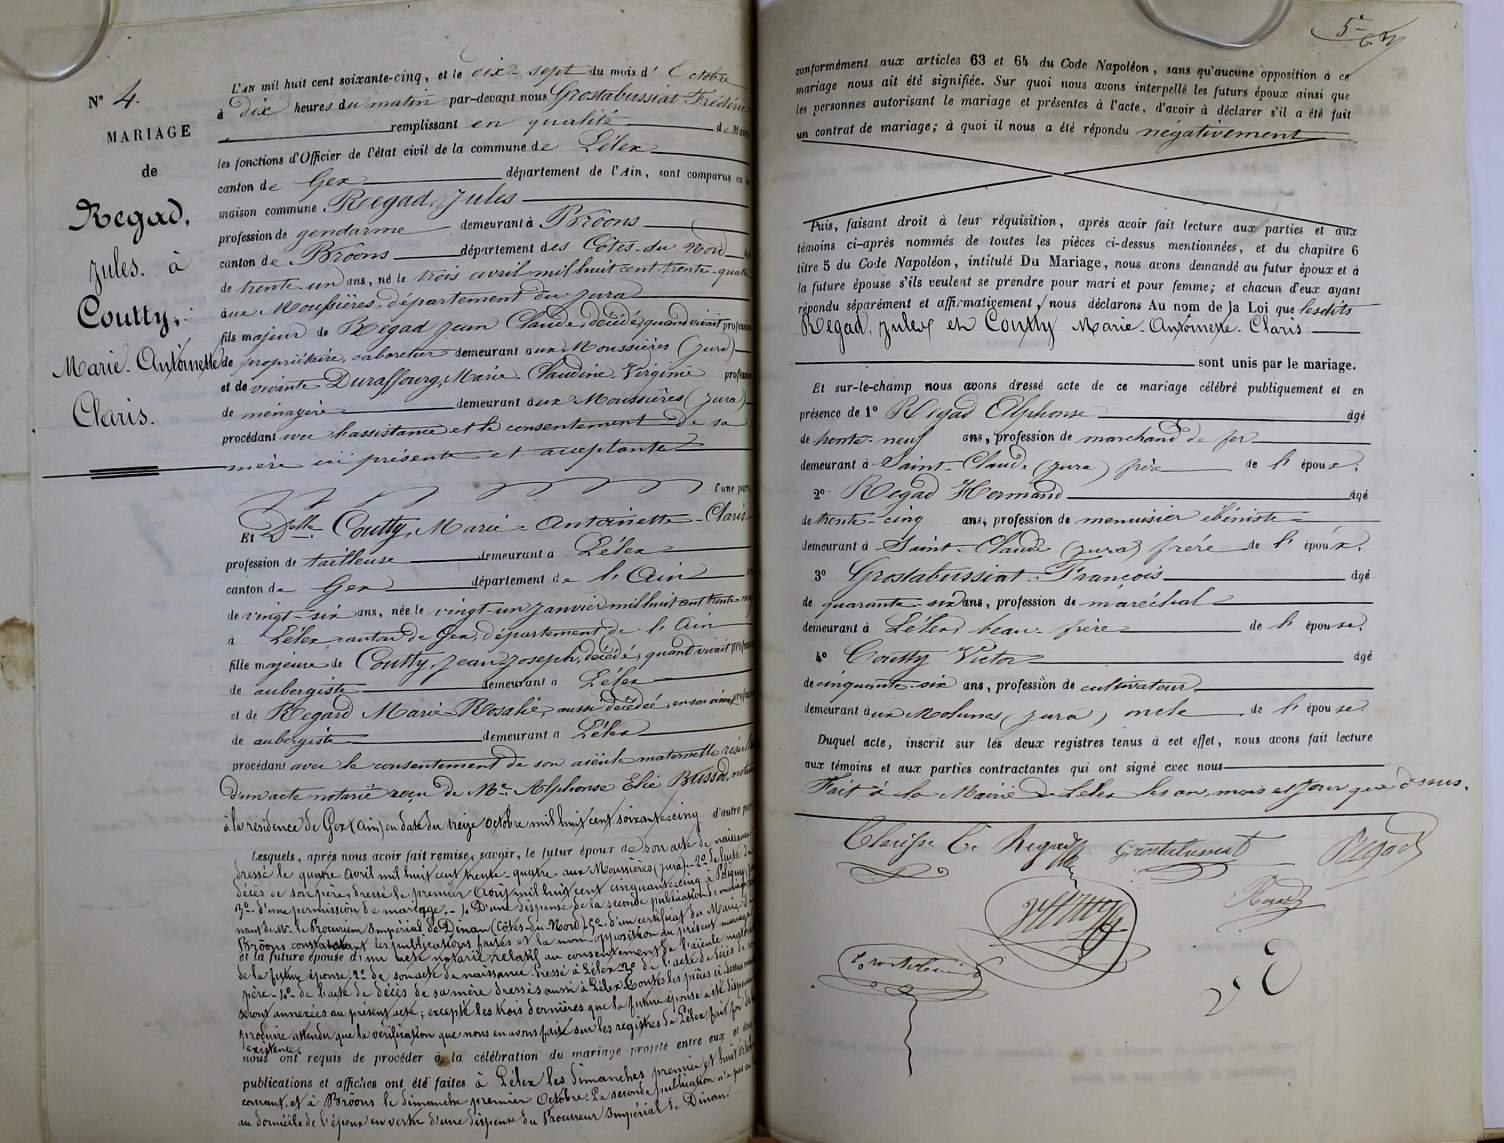 N° 4.
MARIAGE
de
Regad,
Jules. à
Coutty,
Marie-Antoinette
Claris.
L'AN mil huit cent soixante-cinq, et le dix-sept du mois d'Octobre
à dix heures du matin par-devant nous Grostabussiat Frédéric
remplissant en qualité de Maire
les fonctions d'Officier de l'état civil de la commune de Lélex
canton de Gex département de l'Ain, sont comparus en la
maison commune Regad, Jules
profession de gendarme demeurant à Brôons
canton de Brôons département des Côtes-du-Nord âgé
de trente-un ans, né le trois avril mil huit cent trente-quatre
aux Moussières, département du Jura
fils majeur de Regad Jean Claude, décédé, quand vivait profession
de propriétaire, cabaretier demeurant aux Moussières (Jura)
et de vivante Duraffourg, Marie-Claudine-Virginie profession
de ménagère demeurant aux Moussières (Jura)
procédant avec l'assistance et le consentement de sa
mère ici présente et acceptante
d'une part
Et Delle Coutty, Marie-Antoinette-Claris
profession de tailleuse demeurant à Lélex
canton de Gex département de l'Ain
de vingt-six ans, née le vingt-un janvier mil huit cent trente-neuf
à Lélex, canton de Gex, département de l'Ain
fille majeure de Coutty, Jean-Joseph, décédé, quand vivait profession
de aubergiste demeurant à Lélex
et de Regard Marie-Rosalie, aussi décédée, en son vivant profession
de aubergiste demeurant à Lélex
procédant avec le consentement de son aïeule maternelle résulte
d'un acte notarié reçu de Me Alphonse Elie Bussod, notaire
à la résidence de Gex (Ain) en date du treize octobre mil huit cent soixante-cinq d'autre part
Lesquels, après nous avoir fait remise, savoir, le futur époux de son acte de naissance
dressé le quatre avril mil huit cent trente-quatre aux Moussières (Jura) - 2° de l'acte de
décès de son père, dressé le premier août mil huit cent cinquante-cinq à Poligny,
3° d'une permission de mariage - 4° D'une dispense de la seconde publication de mariage
nant de Mr le Procureur Impérial de Dinan (Côtes-du-Nord) 5° d'un certificat du Maire de
Brôons constatant les publications faites et la non opposition au présent mariage
et la future épouse d'un acte notarié relatif au consentement de l'aïeule maternelle
de la future épouse, 2° de son acte de naissance dressé à Lélex - 3° de l'acte de décès de son
père - 4° de l'acte de décès de sa mère dressés aussi à Lélex. Toutes les pièces ci-dessus
seront annexées au présent acte; excepté les trois dernières que la future épouse a été dispensée
produire attendu que la vérification que nous en avons faite sur les registres de Lélex fait foi de leur
existence.
nous ont requis de procéder à la célébration du mariage projeté entre eux et dont
publications et affiches ont été faites à Lélex les dimanches premier et huit octobre
courant, et à Brôons le dimanche premier Octobre. La seconde publication n'a pas eu
au domicile de l'époux en vertu d'une dispense du Procureur Impérial de Dinan.
conformément aux articles 63 et 64 du Code Napoléon, sans qu'aucune opposition à ce
mariage nous ait été signifiée. Sur quoi nous avons interpellé les futurs époux ainsi que
les personnes autorisant le mariage et présentes à l'acte, d'avoir à déclarer s'il a été fait
un contrat de mariage; à quoi il nous a été répondu négativement
Puis, faisant droit à leur réquisition, après avoir fait lecture aux parties et aux
témoins ci-après nommés de toutes les pièces ci-dessus mentionnées, et du chapitre 6
titre 5 du Code Napoléon, intitulé Du Mariage, nous avons demandé au futur époux et à
la future épouse s'ils veulent se prendre pour mari et pour femme; et chacun d'eux ayant
répondu séparément et affirmativement, nous déclarons Au nom de la Loi que lesdits
Regad, Jules et Coutty Marie-Antoinette-Claris
sont unis par le mariage.
Et sur-le-champ nous avons dressé acte de ce mariage célébré publiquement et en
présence de 1° Regad Alphonse âgé
de trente-neuf ans, profession de marchand de fer
demeurant à Saint-Claude (Jura) frère de l'époux.
2° Regad Hormand âgé
de trente-cinq ans, profession de menuisier ébéniste
demeurant à Saint-Claude (Jura) frère de l'époux.
3° Grostabussiat François âgé
de quarante-six ans, profession de maréchal
demeurant à Lélex, beau-frère de l'épouse.
4° Coutty Victor âgé
de cinquante-six ans, profession de cultivateur
demeurant aux Molunes (Jura) oncle de l'épouse
Duquel acte, inscrit sur les deux registres tenus à cet effet, nous avons fait lecture
aux témoins et aux parties contractantes qui ont signé avec nous
Fait à la Mairie de Lélex les an, mois et jour que dessus.
Clarisse C. Regad Grostabussiat Regad
Regad